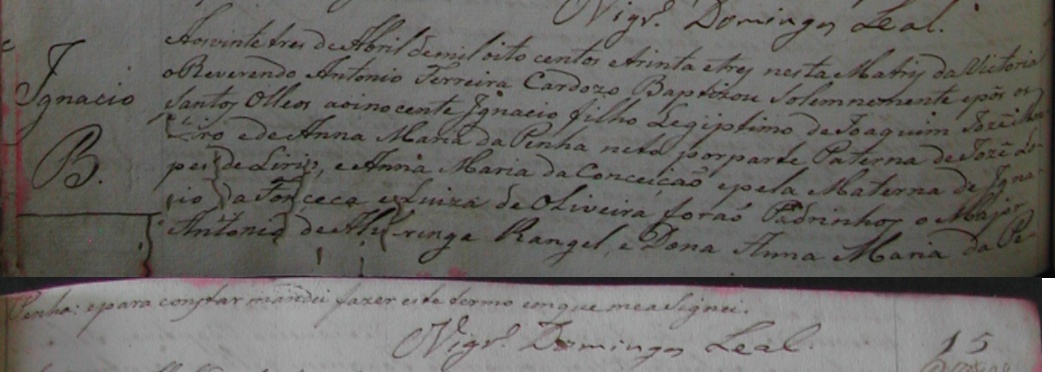 Vigr.º Domingos Leal.
Ignacio
B.
Aos vinte tres de Abril de mil oito centos etrinta etres nesta Matris da Victoria
o Reverendo Antonio Ferreira Cardozo Baptizou Solemnemente epôs os
Santos Olleos aoinocente Ignacio filho Legiptimo de Joaquim Jozé
ede Anna Maria da Penha neto por parte Paterna de Jozé
pes de Lirio, e Anna Maria da Conceição epela Materna de Igna-
cio da Fonceca e Luiza de Oliveira forão Padrinhos o Major
Antonio de Rangel, e Dona Anna Maria da Pe
Penha: epara constar mandei fazer este termo emque meaSignei.
Vigr.º Domingos Leal.
15